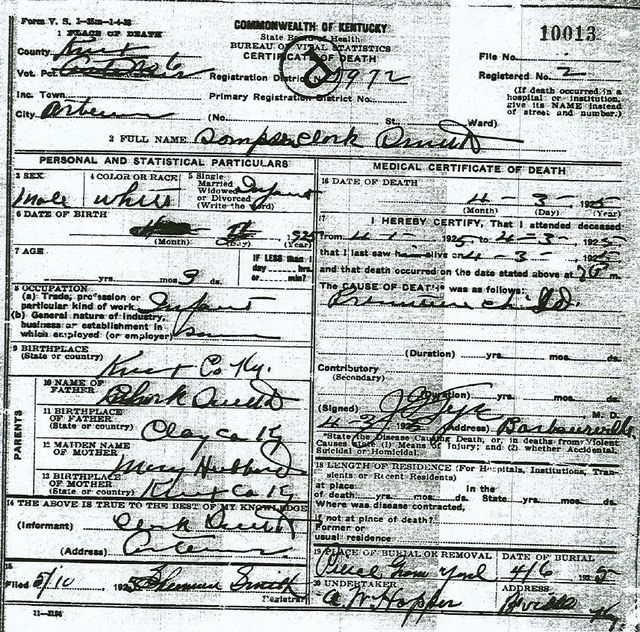 Form V. S. 1-35m-1-4-25
COMMONWEALTH OF KENTUCKY
State Board of Health
BUREAU OF VITAL STATISTICS
CERTIFICATE OF DEATH
10013
1 PLACE OF DEATH
County Knox
Vot. Pct.
Inc. Town
City Artemus
Registration District No. 972
Primary Registration District No.
(No. St., Ward)
File No.
Registered No. 2
(If death occurred in a hospital or institution, give its NAME instead of street and number.)
2 FULL NAME Clark
PERSONAL AND STATISTICAL PARTICULARS
3 SEX Male
4 COLOR OR RACE White
5 Single Married Widowed or Divorced (Write the word) Infant
6 DATE OF BIRTH 1925
(Month) (Day) (Year)
7 AGE
yrs. mos 3 ds.
IF LESS than 1 day hrs. or min?
8 OCCUPATION
(a) Trade, profession or particular kind of work Infant
(b) General nature of industry, business or establishment in which employed (or employer)
9 BIRTHPLACE
(State or country) Knox Co Ky.
PARENTS
10 NAME OF FATHER
11 BIRTHPLACE OF FATHER
(State or country) Clay Co Ky
12 MAIDEN NAME OF MOTHER Mary Hubbard
13 BIRTHPLACE OF MOTHER
(State or country) Knox Co Ky
14 THE ABOVE IS TRUE TO THE BEST OF MY KNOWLEDGE
(Informant)
(Address) Artemus
15
Filed 5/10 1925 Smith
Registrar
11-3184
MEDICAL CERTIFICATE OF DEATH
16 DATE OF DEATH
4 - 3 - 1925
(Month) (Day) (Year)
17
I HEREBY CERTIFY, That I attended deceased
from 4-1- 1925 to 4-3- 1925
that I last saw him alive on 4-3- 1925
and that death occurred on the date stated above at m.
The CAUSE OF DEATH* was as follows:
Premature child.
(Duration) yrs. mos. ds.
Contributory
(Secondary)
(Duration) yrs. mos. ds.
(Signed) M. D.
4-3 1925 (Address) Barbourville
*State the Disease Causing Death, or, in deaths from Violent Causes state (1) Means of Injury; and (2) whether Accidental, Suicidal or Homicidal.
18 LENGTH OF RESIDENCE (For Hospitals, Institutions, Transients or Recent Residents)
at place of death yrs. mos. ds.
In the State yrs. mos. ds.
Where was disease contracted,
if not at place of death?
Former or usual residence
19 PLACE OF BURIAL OR REMOVAL
DATE OF BURIAL
Grave yard 4/6 1925
20 UNDERTAKER
ADDRESS
A W Hopper Ky